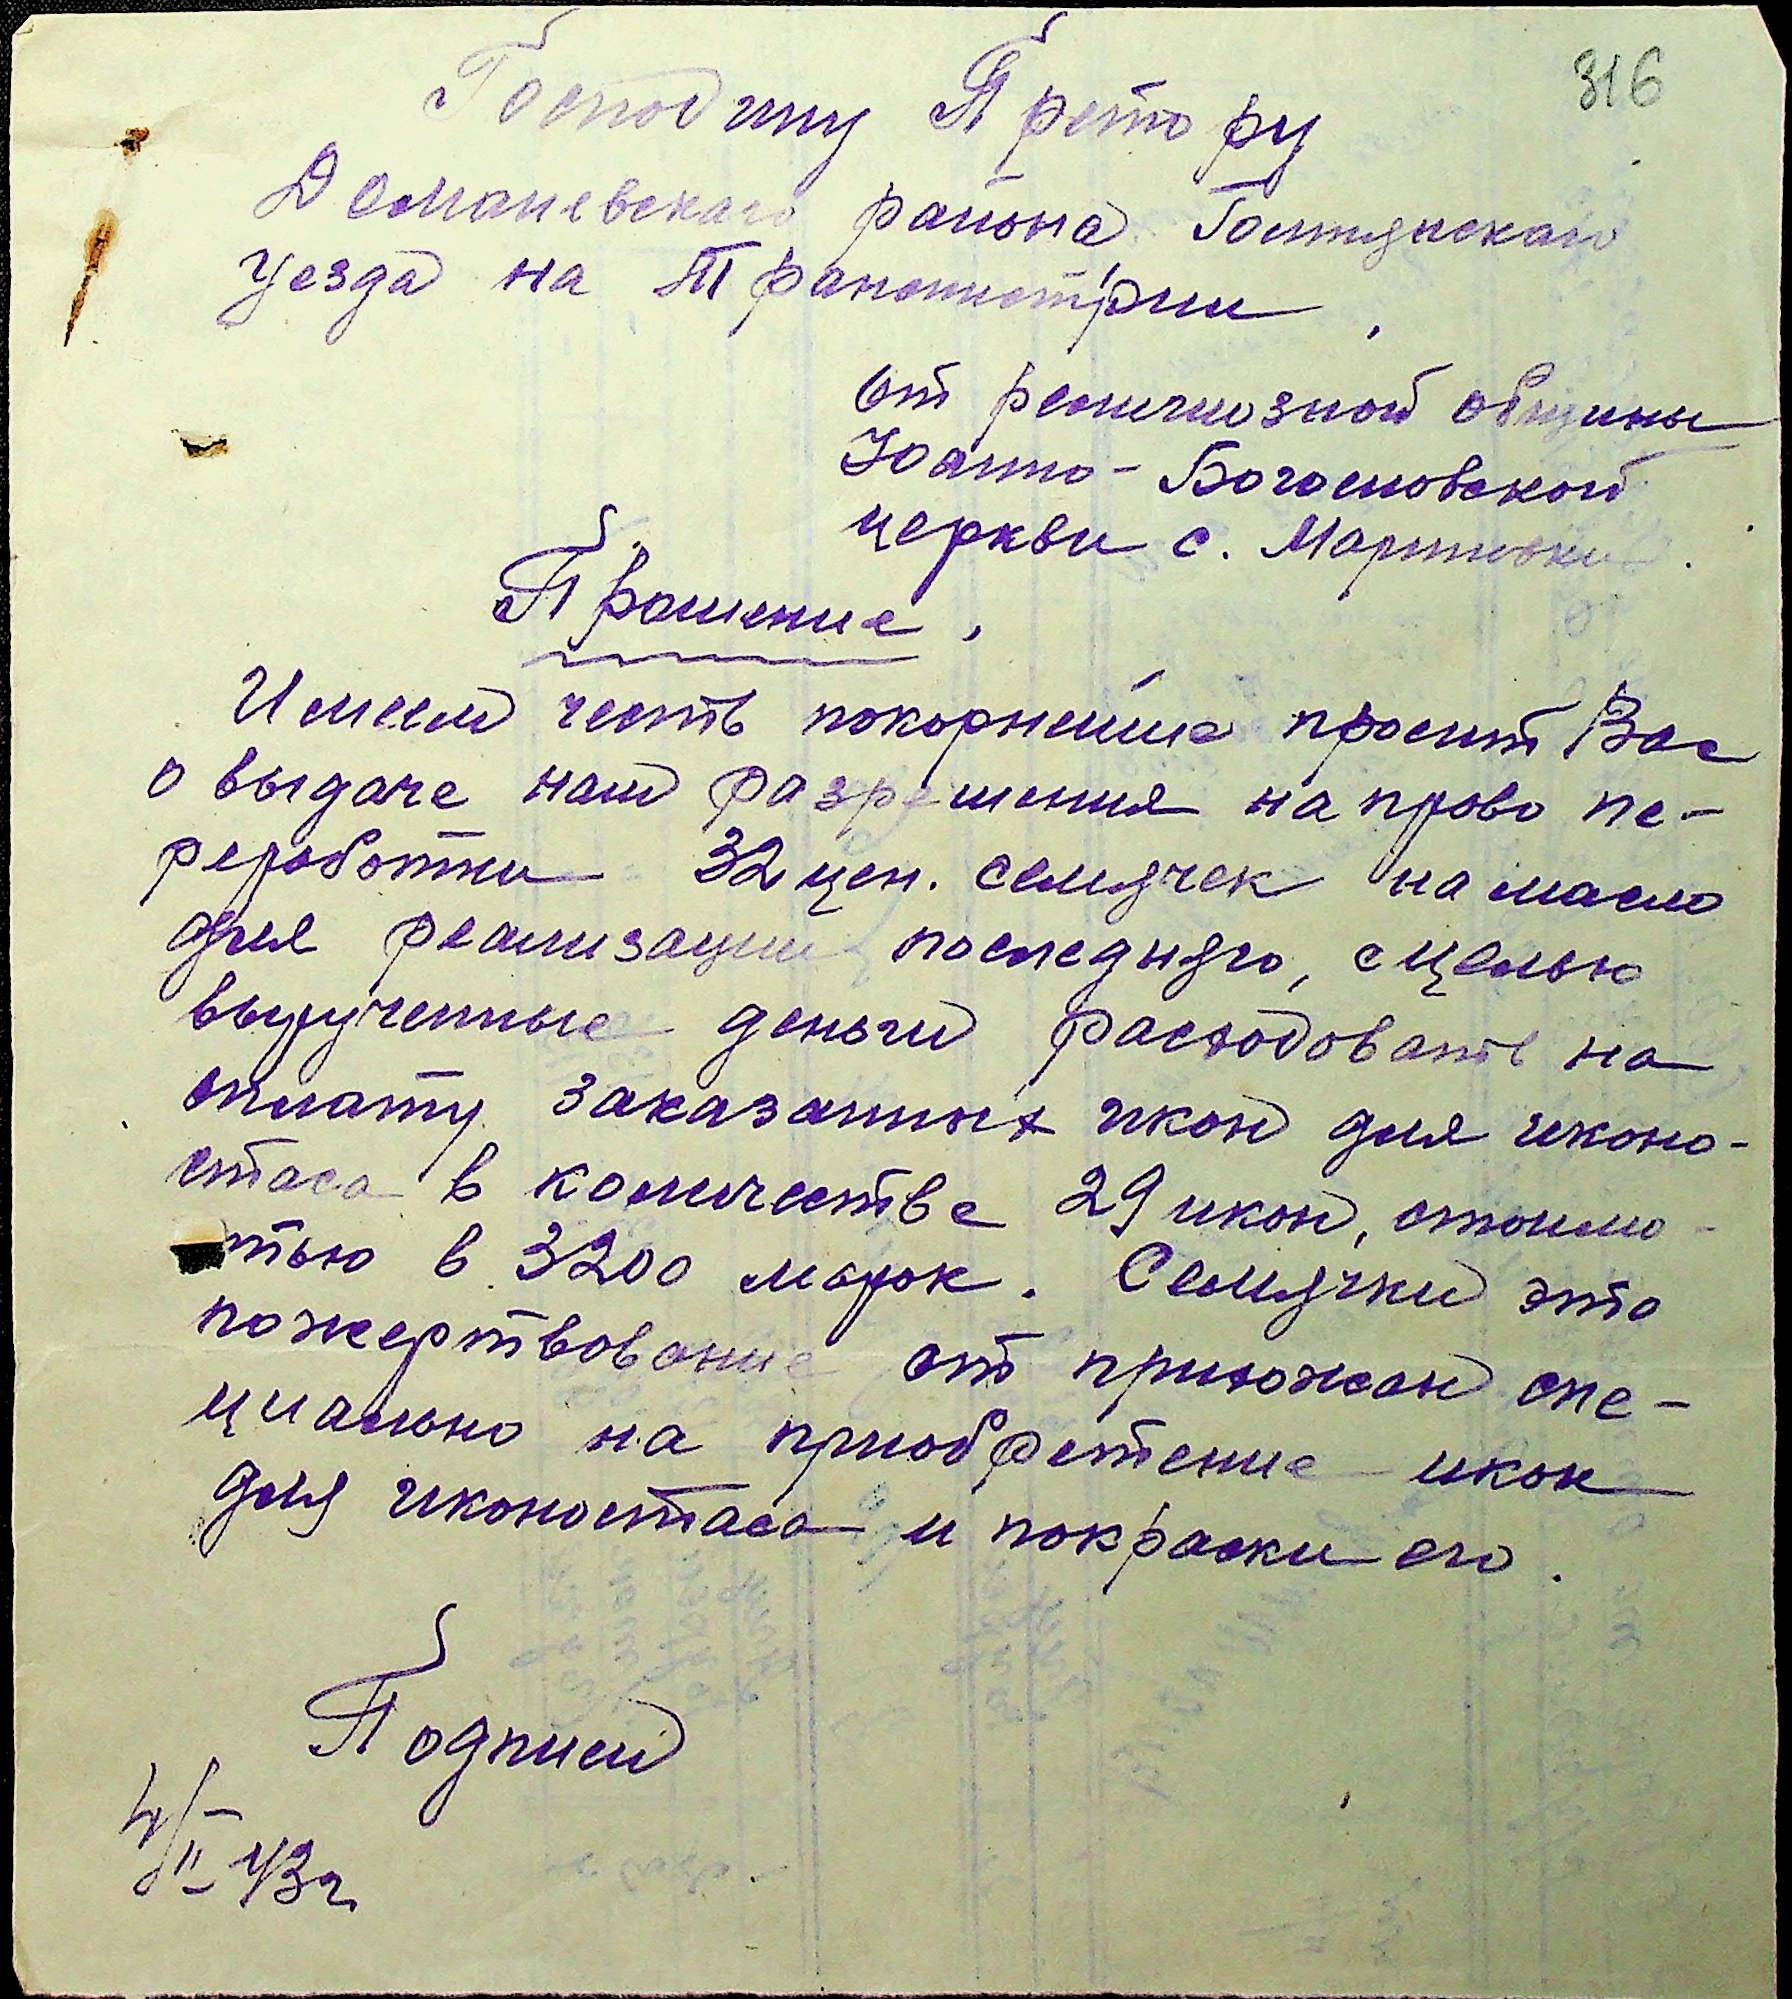 316
Господину Претору
Доманевскаго района Голтянскаго
уезда на Транснистрии,
От религиозной общины
Иоанно-Богословской
церкви с. Мариновки.
Прошение.
Имеем честь покорнейше просит Вас
о выдаче нам разрешения на право пе-
реработки 32 цен. семячек на масло
для реализации последняго, с целью
вырученные деньги расходовать на
оплату заказанных икон для иконо-
стаса в количестве 29 икон, стоимо-
стью в 3200 марок. Семячки это
пожертвование от прихожан спе-
циально на приобретение икон
для иконостаса и покраски его.
Подписи
4/II 43 г.